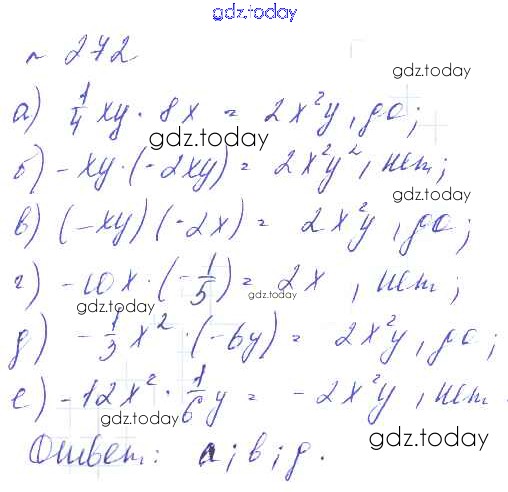 gdz.today
№ 272
gdz.today
а) 1/4 xy · 8x = 2x²y, да;
gdz.today
б) -xy · (-2xy) = 2x²y², нет;
gdz.today
в) (-xy) (-2x) = 2x²y, да;
г) -10x · (-1/5) = 2x, нет;
gdz.today
gdz.today
д) -1/3 x² · (-6y) = 2x²y, да;
gdz.today
е) -12x² · 1/6 y = -2x²y, нет.
gdz.today
gdz.today
Ответ: а; в; д.
gdz.today